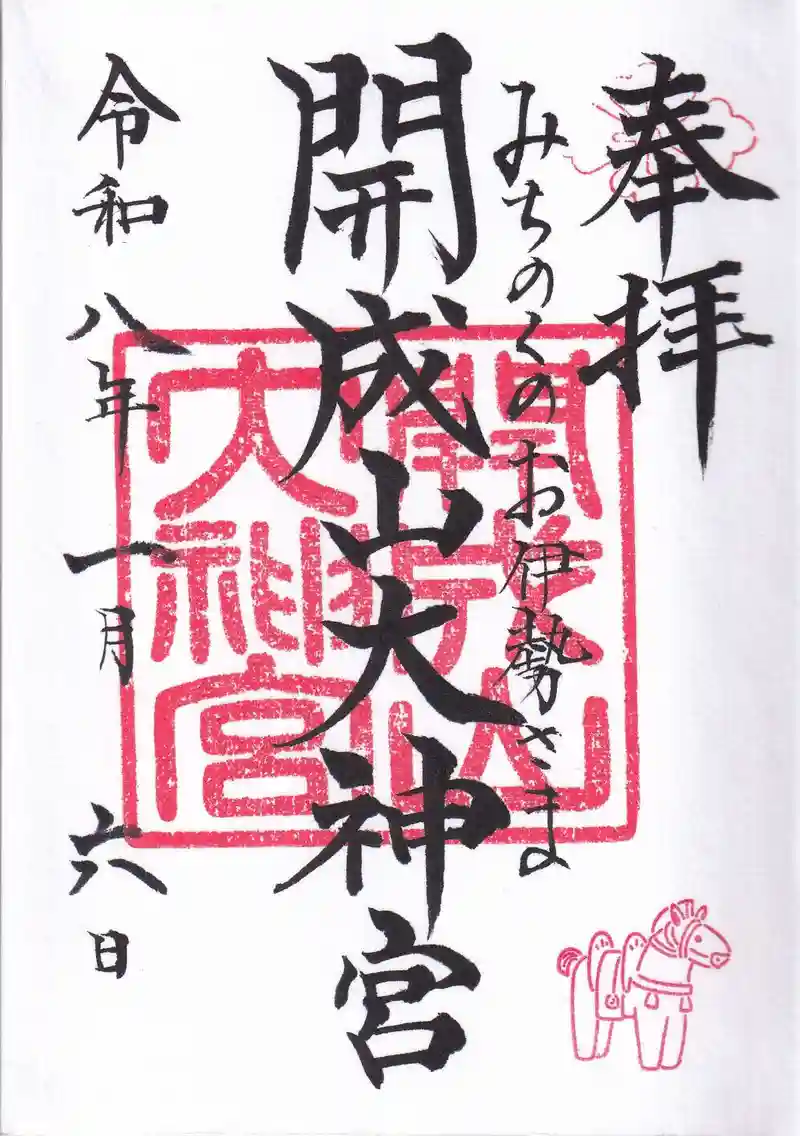 奉拝
みちのくのお伊勢さま
開成山大神宮
令和八年一月六日